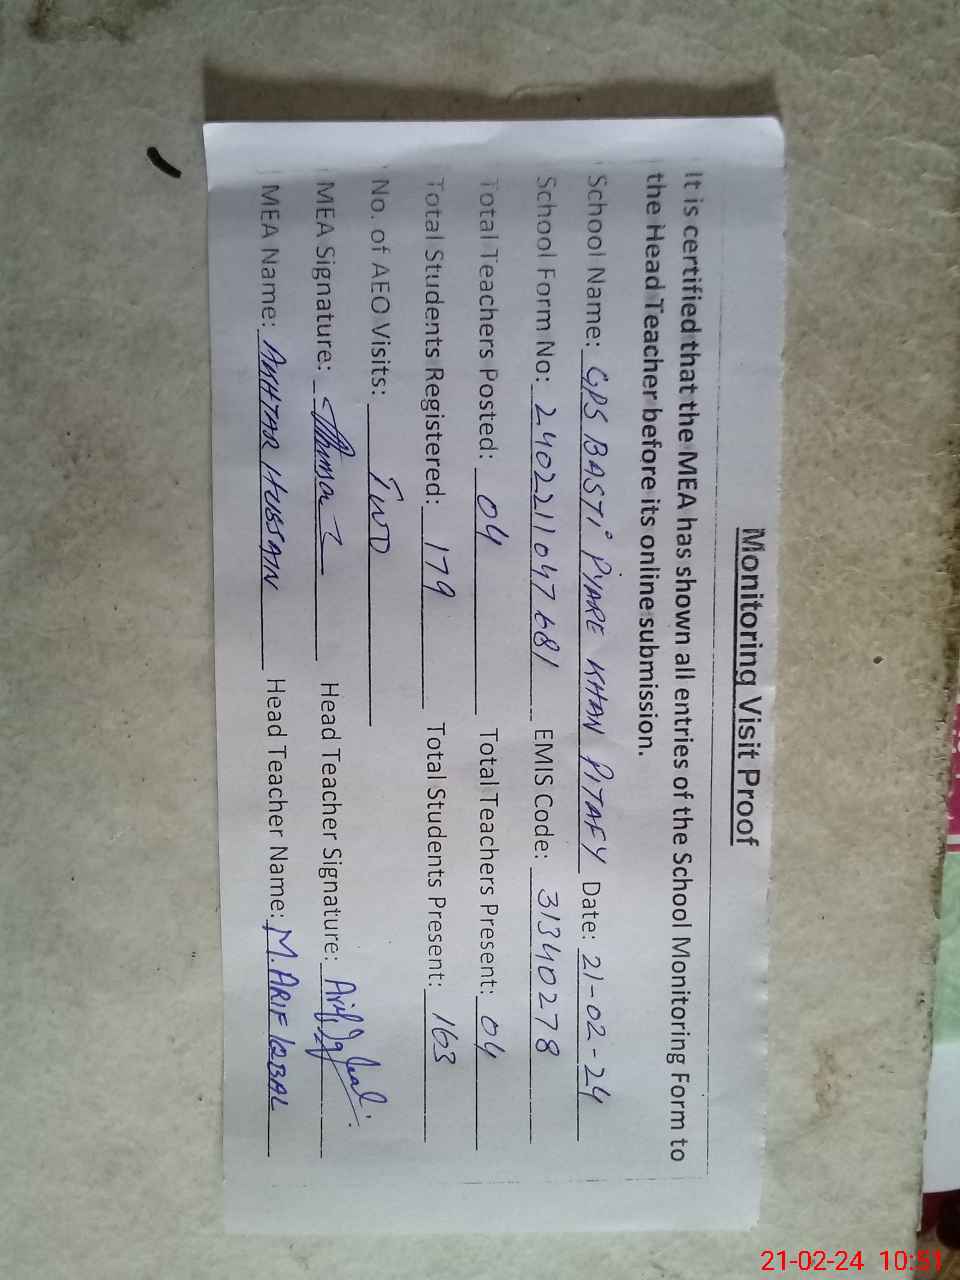 Monitoring Visit Proof
It is certified that the MEA has shown all entries of the School Monitoring Form to
the Head Teacher before its online submission.
School Name: GPS BASTI PYARE KHAN PITAFY Date: 21-02-24
School Form No: 2402211047681 EMIS Code: 31340278
Total Teachers Posted: 04 Total Teachers Present: 04
Total Students Registered: 179 Total Students Present: 163
No. of AEO Visits: Two
MEA Signature: Head Teacher Signature: Arif Iqbal
MEA Name: AKHTAR HUSSAIN Head Teacher Name: M. ARIF IQBAL
21-02-24 10:51